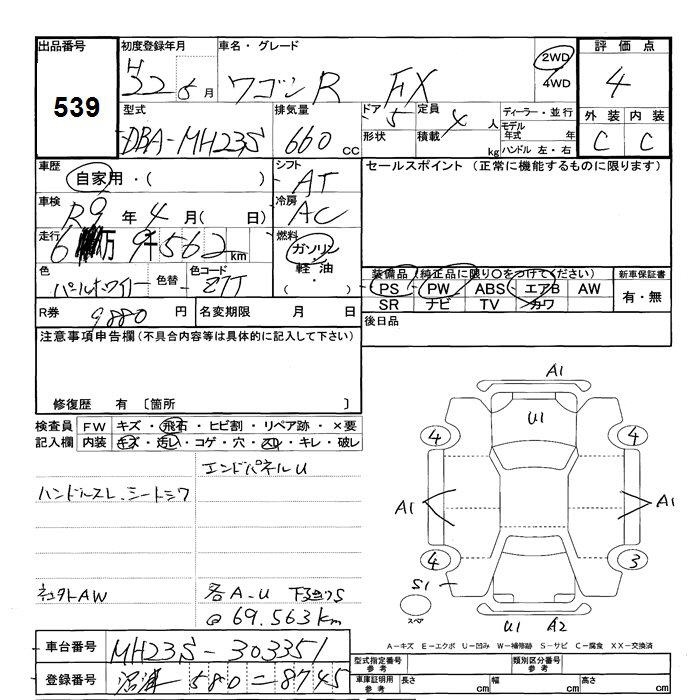 出品番号
539
初度登録年月
H
22 5月
車名・グレード
ワゴンR FX
2WD
4WD
評価点
4
外装 内装
C C
型式
DBA-MH23S
排気量
660 cc
ドア 5
形状
定員
4 人
積載 kg
ディーラー・並行
モデル
年式 年
ハンドル 左・右
車歴
自家用・( )
シフト
AT
セールスポイント (正常に機能するものに限ります)
車検
R9年4月( 日)
冷房
AC
走行
6万9千562km
燃料
ガソリン
軽油
( ・ )
色
パールホワイト
色替
色コード
Z7T
装備品 (純正品に限り○をつけてください)
PS PW ABS エアB AW
SR ナビ TV カワ
新車保証書
有・無
R券 9880円
名変期限 月 日
後日品
注意事項申告欄(不具合内容等は具体的に記入して下さい)
修復歴 有〔箇所 〕
検査員
記入欄
FW キズ・飛石・ヒビ割・リペア跡・×要
内装 キズ・汚れ・コゲ・穴・スレ・キレ・破レ
エンドパネルU
ハンドルスレ、シートシワ
社外AW
各A-U 下廻りS
@69.563km
A1
U1
4 4
A1 A1
4 3
S1
スペア
U1 A2
A-キズ E-エクボ U-凹み W-補修跡 S-サビ C-腐食 XX-交換済
車台番号 MH23S-303351
登録番号 沼津 580 = 8745
型式指定番号
参考
類別区分番号
参考
車庫証明用
参考
長さ cm
幅 cm
高さ cm